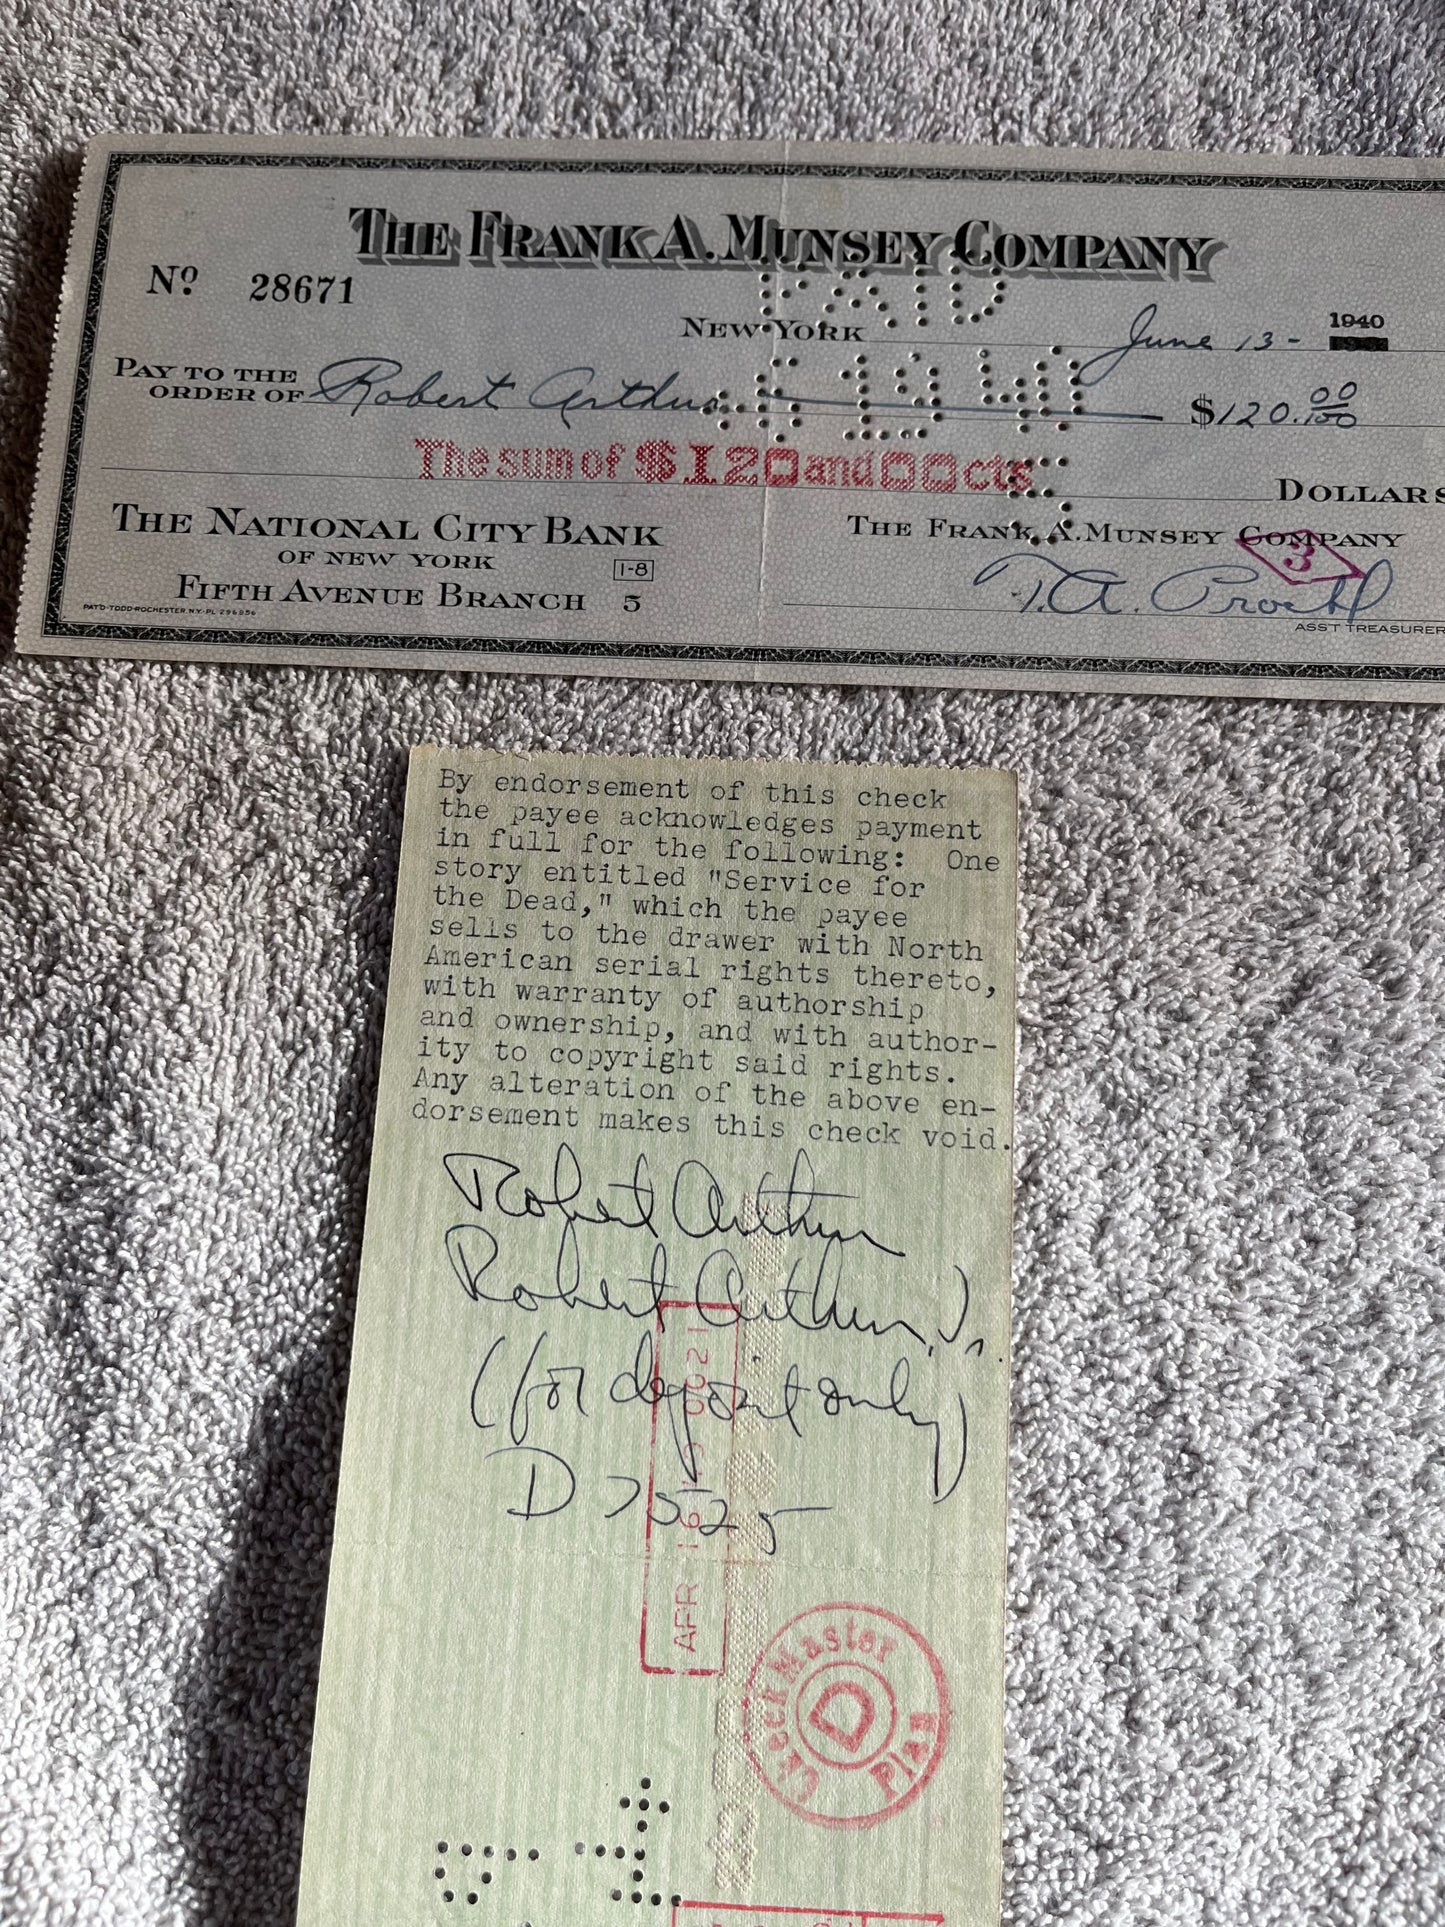 THE FRANK A. MUNSEY COMPANY
Nº 28671
PAID
NEW YORK June 13- 1940
PAY TO THE ORDER OF Robert Arthur $120.00/100
The sum of $120 and 00 cts
DOLLARS
THE NATIONAL CITY BANK
OF NEW YORK 1-8
FIFTH AVENUE BRANCH 5
PAT'D-TODD-ROCHESTER.N.Y-PL 296956
THE FRANK A. MUNSEY COMPANY
3
ASST TREASURER
By endorsement of this check
the payee acknowledges payment
in full for the following: One
story entitled "Service for
the Dead," which the payee
sells to the drawer with North
American serial rights thereto,
with warranty of authorship
and ownership, and with author-
ity to copyright said rights.
Any alteration of the above en-
dorsement makes this check void.
Robert Arthur
Robert Arthur, Jr.
(for deposit only)
D 7525
APR 16
CheckMaster
D
Plan